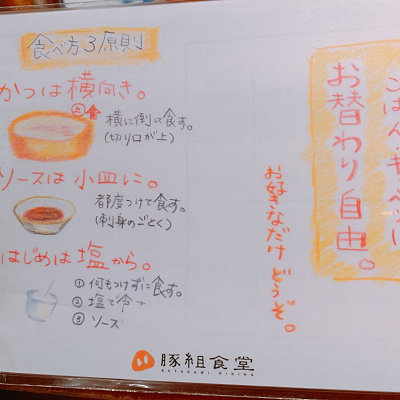 食べ方3原則
かつは横向き。
横に倒して食す。
(切り口が上)
ソースは小皿に。
都度つけて食す。
(刺身のごとく)
はじめは塩から。
① 何もつけずに食す。
② 塩で
③ ソース
ごはん、キャベツは
お替わり自由。
お好きなだけ どうぞ。
豚組食堂
BUTAGUMI DINING